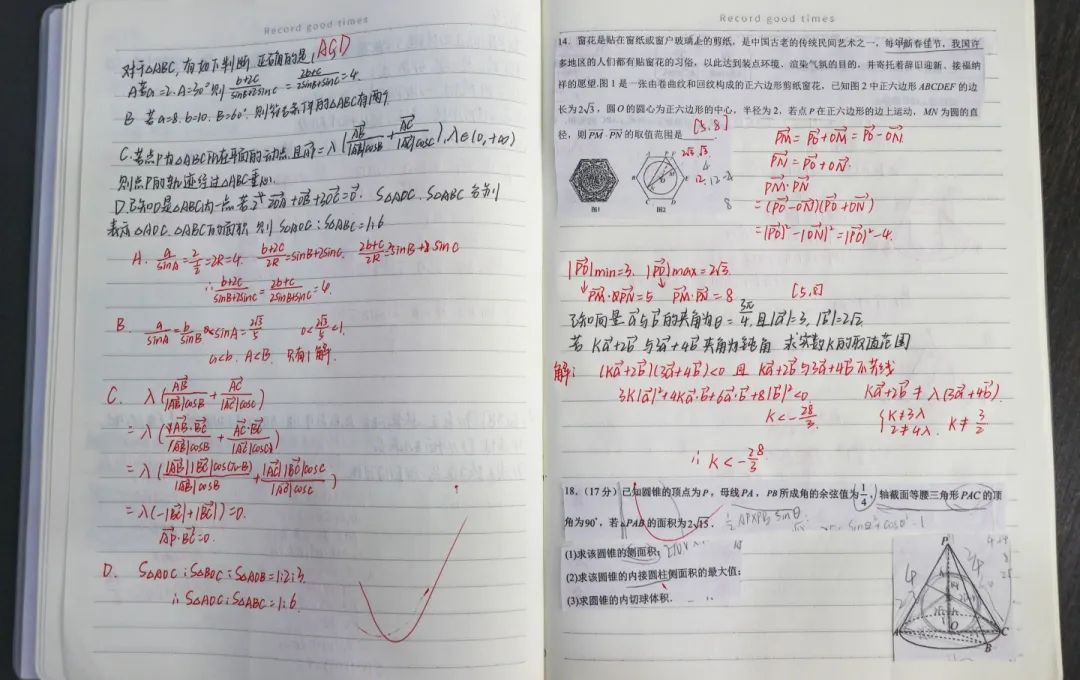 对于△ABC,有如下判断,正确的是 A
A 若a=2. A=30° 则 b+2c/sinB+2sinC = 2b+c/2sinB+sinC = 4
B 若 a=8. b=10. B=60°. 则符合条件的△ABC有两个
C.若点P为△ABC所在平面的动点,且AP=λ(AB/|AB|cosB + AC/|AC|cosC), λ∈(0,+∞)
则点P的轨迹经过△ABC重心.
D.已知O是△ABC内一点,若 2OA+OB+3OC=0. S△AOC. S△ABC 分别
表示△AOC. △ABC的面积,则 S△AOC:S△ABC=1:6
A. a/sinA = 2R=4. b+2c/2R=sinB+2sinC. 2b+c/2R=
∴ b+2c/sinB+2sinC = 2b+c/2sinB+sinC = 4.
B. a/sinA = b/sinB sinA= 2√3/5 0<2√3/5<1.
a<b. A<B. 只有1解.
C. λ(AB/|AB|cosB + AC/|AC|cosC)
=λ(AB·BC/|AB|cosB + AC·BC/|AC|cosC)
=λ(|AB||BC|cos(π-B)/|AB|cosB + |AC||BC|cosC/|AC|cosC)
=λ(-|BC|+|BC|)=0.
AP·BC=0.
D. S△AOC:S△BOC:S△AOB=1:2:3
∴ S△AOC:S△ABC=1:6.
Record good times
14. 窗花是贴在窗纸或窗户玻璃上的剪纸,是中国古老的传统民间艺术之一,每年新春佳节,我国许
多地区的人们都有贴窗花的习俗,以此达到装点环境、渲染气氛的目的,并寄托着辞旧迎新、接福纳
祥的愿望.图1是一张由卷曲纹和回纹构成的正六边形剪纸窗花,已知图2中正六边形ABCDEF的边
长为2√3,圆O的圆心为正六边形的中心,半径为2,若点P在正六边形的边上运动,MN为圆的直
径,则PM·PN的取值范围是 [5,8]
图1 图2
PM=PO+OM=PO-ON
PN=PO+ON.
PM·PN
=(PO-ON)(PO+ON)
=|PO|²-|ON|²=|PO|²-4.
|PO|min=3. |PO|max=2√3.
PN=5 PM·PN=8 [5,8]
已知向量a与b的夹角为θ=3π/4,且|a|=3, |b|=2√2
若 Ka+2b 与3a+4b夹角为钝角 求实数K的取值范围
解: (Ka+2b)(3a+4b)<0 且 Ka+2b与3a+4b不共线
3K|a|²+4Ka·b+6a·b+8|b|²<0 Ka+2b≠λ(3a+4b).
K<-28/3. {K≠3λ 2≠4λ. K≠3/2
∴ K<-28/3
18. (17分)已知圆锥的顶点为P,母线PA,PB所成角的余弦值为1/4,轴截面等腰三角形PAC的顶
角为90°,若△PAB的面积为2√15.
(1)求该圆锥的侧面积;
(2)求该圆锥的内接圆柱侧面积的最大值;
(3)求圆锥的内切球体积.
P
A O C
B